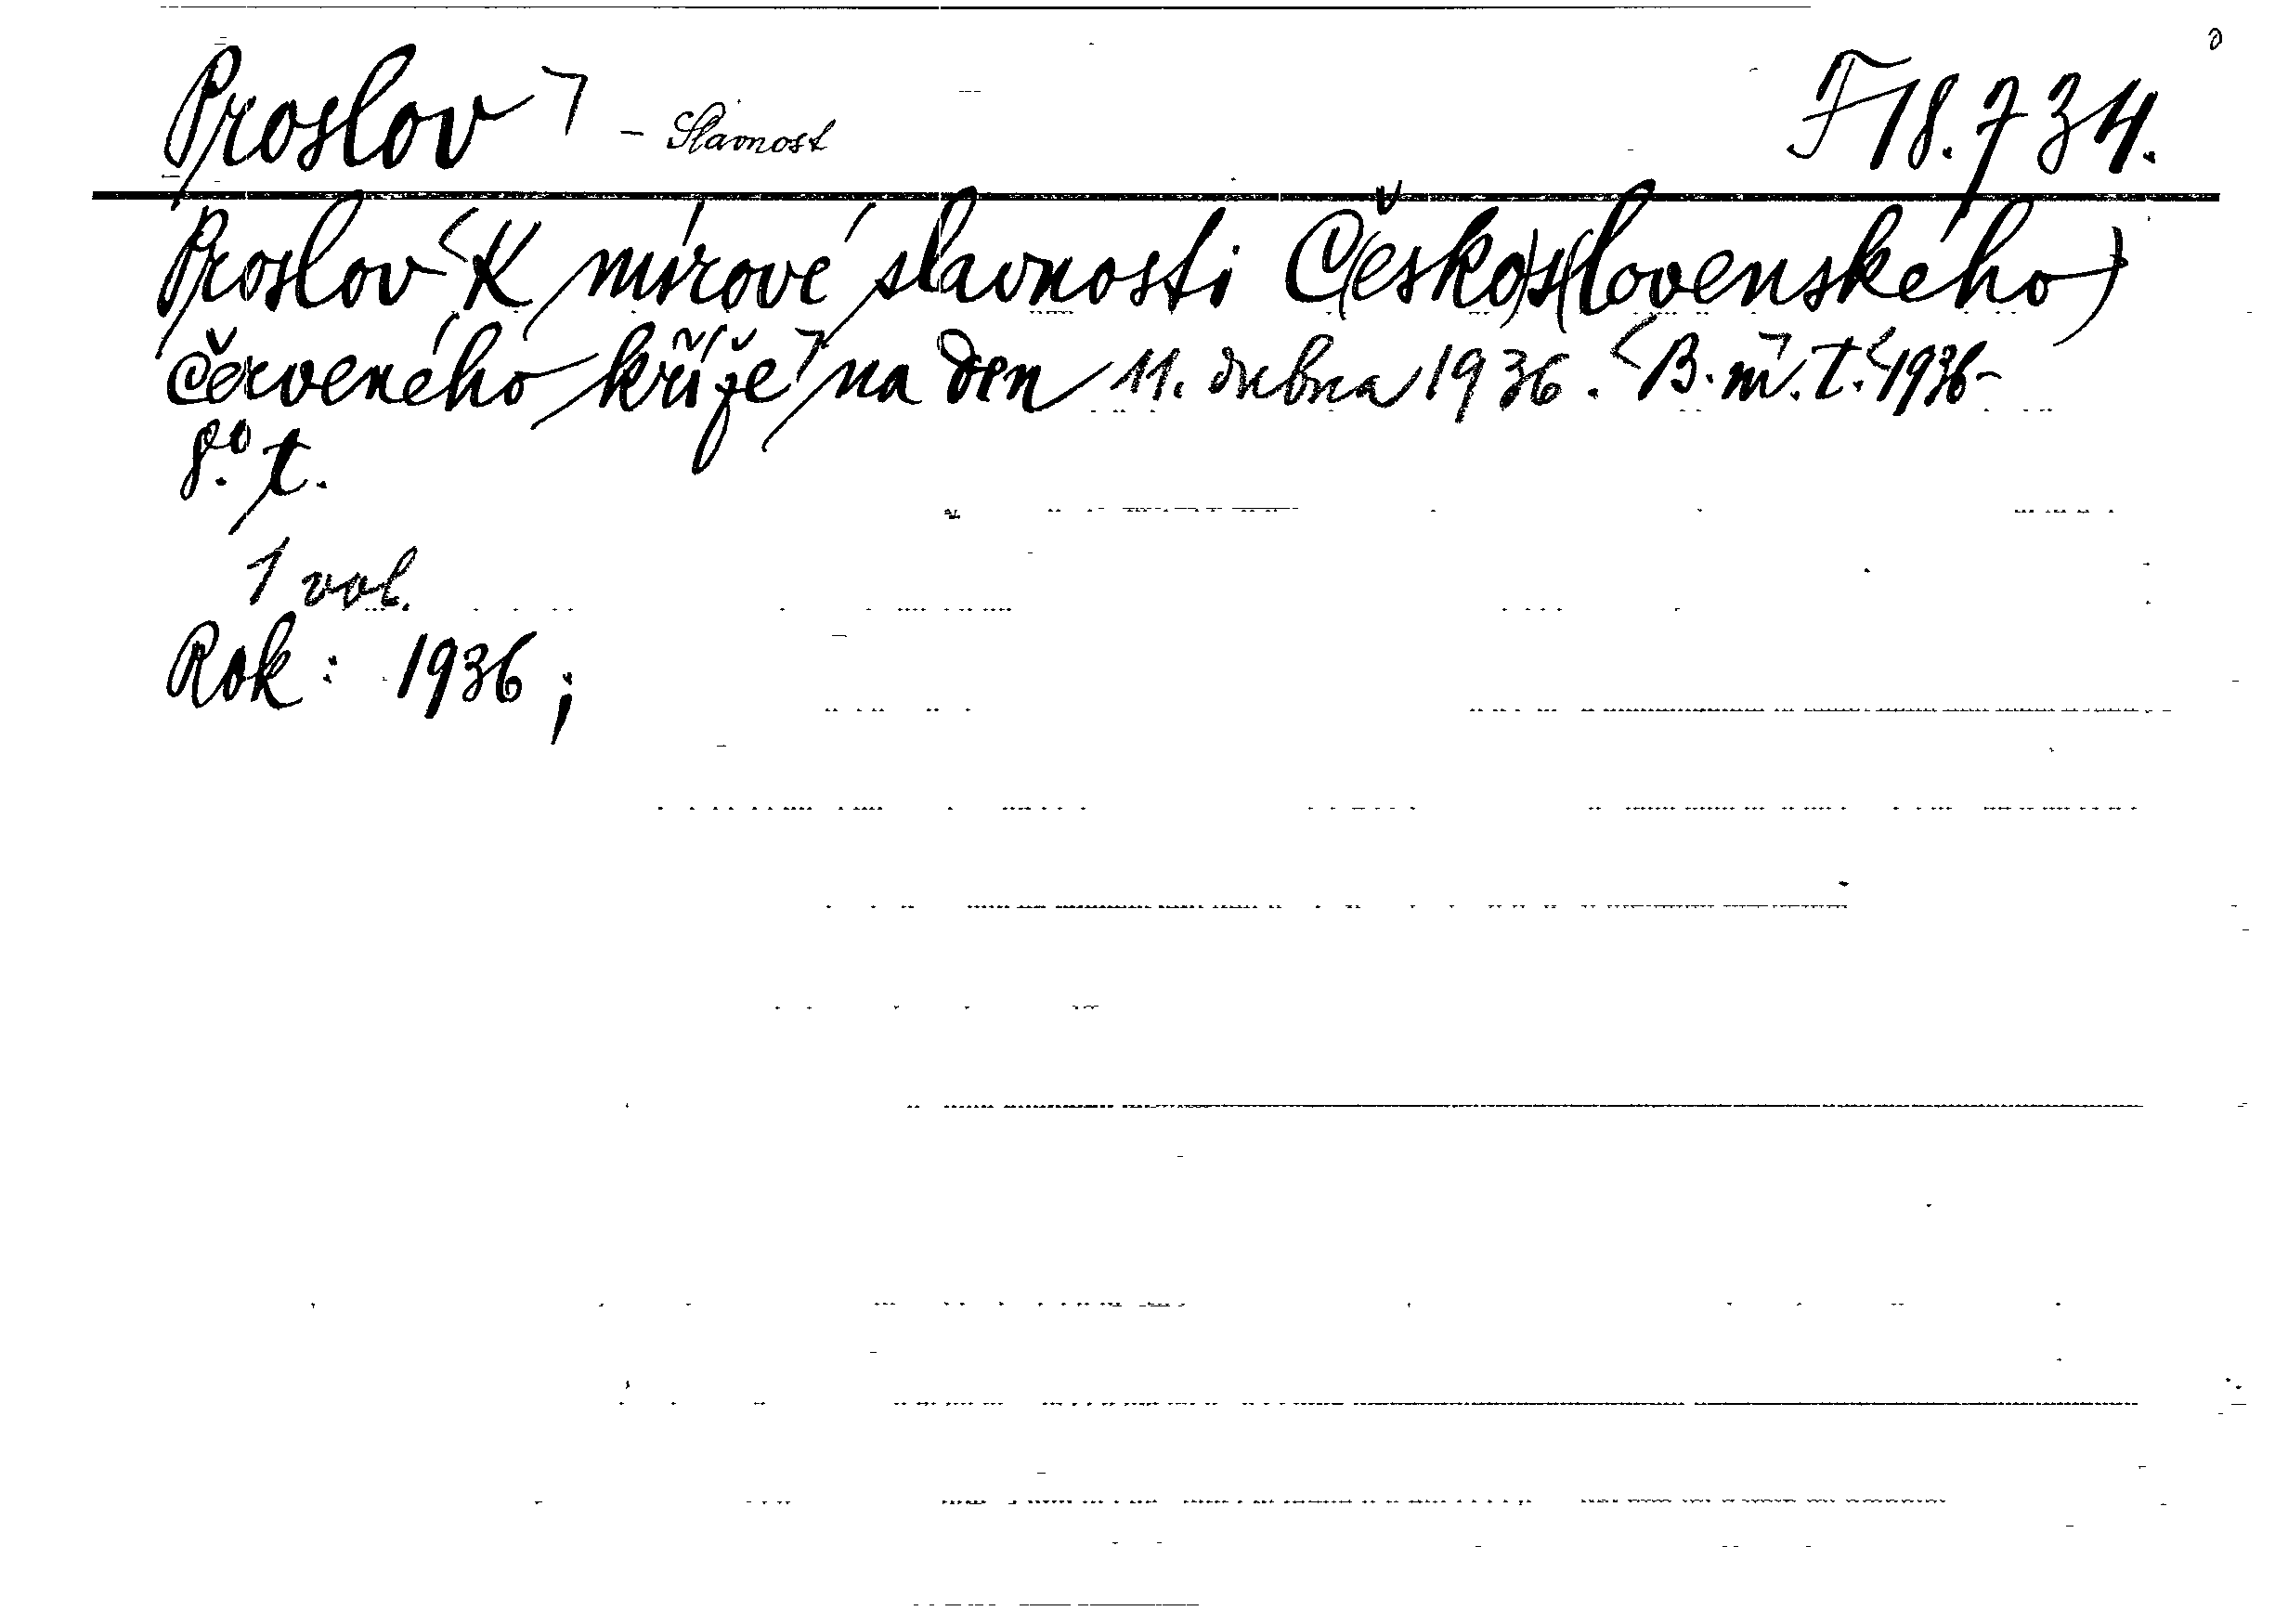 Proslov ⌝ - Slavnost F 18.734.
Proslov ⌜K mírové slavnosti Č(esko)s(lovenského)
červeného kříže⌝ na den 11. dubna 1936. ⌜B. m⌝. t. ⌜1936-
8.° t.
1 vol.
Rok: 1936;